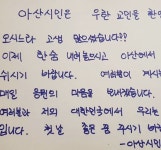 아산시민은 우한 교민을 환영
오시느라 고생 많으셨습니다??
이제 한숨 내려놓으시고 아산에서
쉬시기 바랍니다. 여러분이 계시는
매일 응원의 마음을 보내겠습니다.
여러분과 저희 대한민국에서 우리는
입니다. 첫날 좋은 꿈 꾸시기 바
-아산시민